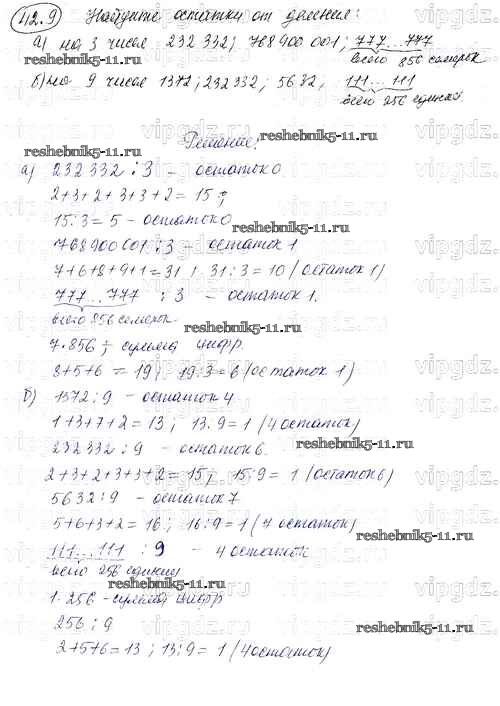 42.9 Найдите остатки от деления:
а) на 3 числа 232 332; 768 900 001; 777...777
всего 856 семерок
б) на 9 числа 1372; 232332; 5632; 111...111
всего 256 единиц
reshebnik5-11.ru
Решение:
reshebnik5-11.ru
а) 232332 : 3 - остаток 0
2+3+2+3+3+2=15;
15:3=5 - остаток 0
reshebnik5-11.ru
768900001 : 3 - остаток 1
7+6+8+9+1=31; 31:3=10 (остаток 1)
777...777 : 3 - остаток 1.
всего 856 семерок
reshebnik5-11.ru
7·856 - сумма цифр
8+5+6=19; 19:3=6 (остаток 1)
б) 1372:9 - остаток 4
1+3+7+2=13; 13:9=1 (4 остаток)
reshebnik5-11.ru
232332 : 9 - остаток 6.
2+3+2+3+3+2=15; 15:9=1 (остаток 6)
5632:9 - остаток 7
5+6+3+2=16; 16:9=1 (7 остаток)
reshebnik5-11.ru
111...111 : 9 - 4 остаток
всего 256 единиц
reshebnik5-11.ru
1·256 - сумма цифр
256 : 9
reshebnik5-11.ru
2+5+6=13; 13:9=1 (4 остаток)
vipgdz.